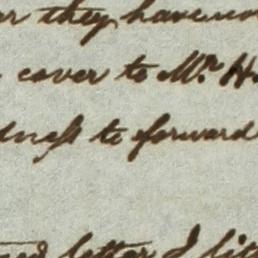 they have
cover to Mr. H.
dness to forward
letter I